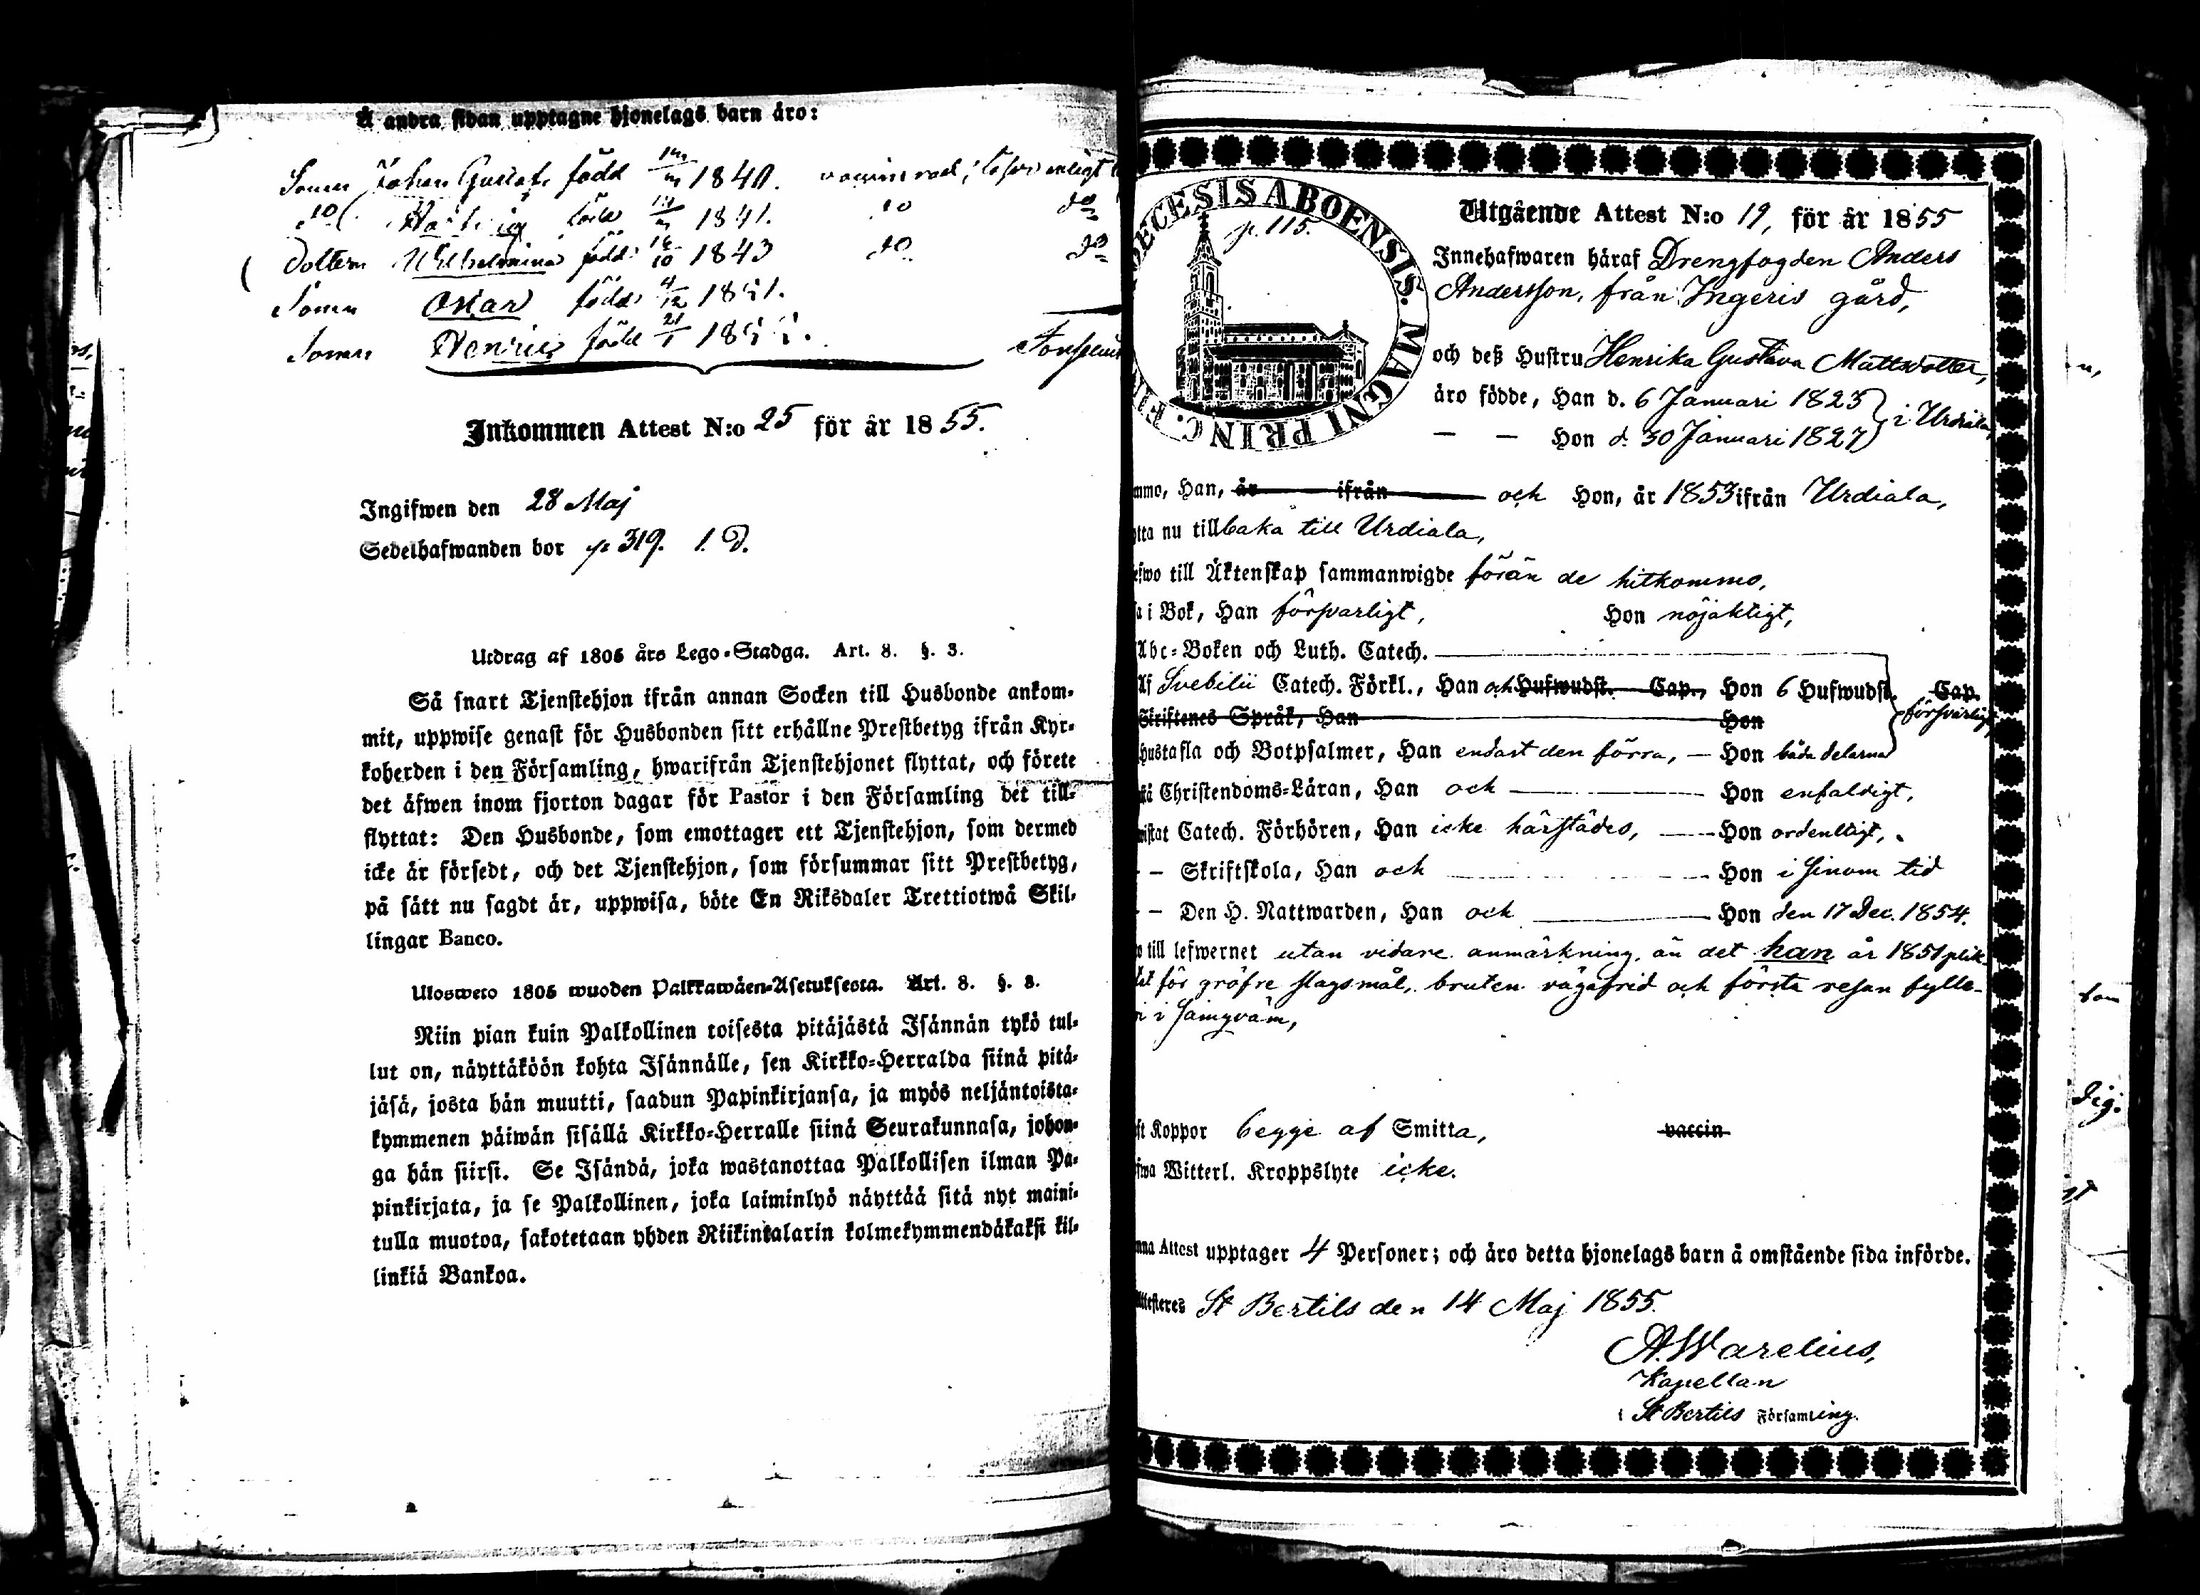 Å andra sidan upptagne hjonelags barn äro:
Sonen Johan Gustaf född 1840.
född 1841.
Dottern Wilhelmina född 16/10 1843
Sonen Oskar född 4/12 1851.
Sonen Henric född 21/1
Inkommen Attest N:o 25 för år 1855.
Ingifwen den 28 Maj
Sedelhafwanden bor p 319.
Utdrag af 1805 års Lego-Stadga. Art. 8. §. 3.
Så snart Tjenstehjon ifrån annan Socken till Husbonde ankom-
mit, uppwise genast för Husbonden sitt erhållne Prestbetyg ifrån Kyr-
koherden i den Församling, hwarifrån Tjenstehjonet flyttat, och förete
det äfwen inom fjorton dagar för Pastor i den Församling det till-
flyttat: Den Husbonde, som emottager ett Tjenstehjon, som dermed
icke är försedt, och det Tjenstehjon, som försummar sitt Prestbetyg,
på sätt nu sagdt är, uppwisa, böte En Riksdaler Trettiotwå Skil-
lingar Banco.
Ulosweto 1805 wuoden Palkkawäen-Asetuksesta. Art. 8. §. 3.
Niin pian kuin Palkollinen toisesta pitäjästä Isännän tykö tul-
lut on, näyttäköön kohta Isännälle, sen Kirkko-Herralda siinä pitä-
jäsä, josta hän muutti, saadun Papinkirjansa, ja myös neljäntoista-
kymmenen päiwän sisällä Kirkko-Herralle siinä Seurakunnasa, johon-
ga hän siirsi. Se Isändä, joka wastanottaa Palkollisen ilman Pa-
pinkirjata, ja se Palkollinen, joka laiminlyö näyttää sitä nyt maini-
tulla muotoa, sakotetaan yhden Riikintalarin kolmekymmendäkaksi kil-
linkiä Bankoa.
DIOECESIS ABOENSIS. MAGNI PRINC. FIN
p. 115.
Utgående Attest N:o 19, för år 1855
Innehafwaren häraf Drengfogden Anders
Andersson, från Ingeris gård,
och deß Hustru Henrika Gustava Mattsdotter,
äro födde, Han d. 6 Januari 1823
— — Hon d. 30 Januari 1827 } i Urdiala,
mmo, Han, är ifrån och Hon, år 1853 ifrån Urdiala,
tta nu tillbaka till Urdiala,
efwo till Äktenskap sammanwigde förän de hitkommo,
a i Bok, Han försvarligt, Hon nöjaktigt,
Abc-Boken och Luth. Catech.
Af Svebilii Catech. Förkl., Han och Hufwudst. Cap., Hon 6 Hufwudst. Cap. försvarligt,
Skriftenes Språk, Han Hon
Hustafla och Botpsalmer, Han endast den förra, — Hon båda delarna
tå Christendoms-Läran, Han och Hon enfaldigt,
wistat Catech. Förhören, Han icke härstädes, — Hon ordentligt,
- - Skriftskola, Han och Hon i sinom tid
- - Den H. Nattwarden, Han och Hon den 17 Dec. 1854.
o till lefwernet utan vidare anmärkning, än det han år 1851 plik-
tat för gröfre slagsmål, bruten vägafrid och första resan fylle-
ri i samqväm,
ft Koppor begge af Smitta, vaccin
fwa Witterl. Kroppslyte icke.
nna Attest upptager 4 Personer; och äro detta hjonelags barn å omstående sida införde.
Attesteres St Bertils den 14 Maj 1855.
A. Warelius,
Kapellan
i St Bertils Församling.